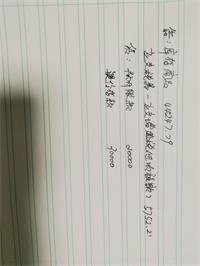 借：库存商品 44247.79
应交税费－应交增值税（进项税额） 5752.21
贷：预付账款 20000
银行存款 30000